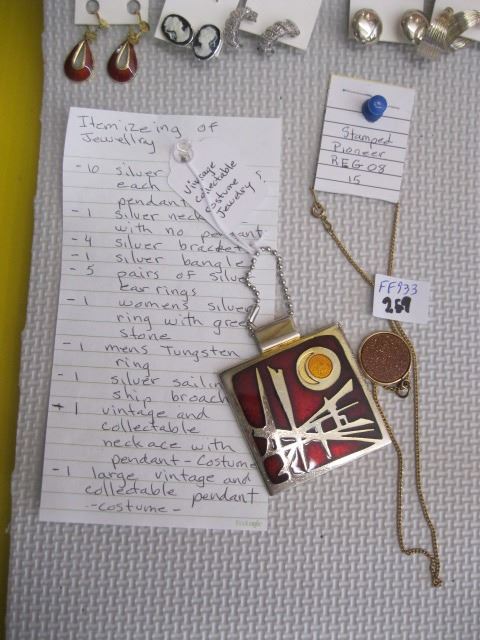 Itemizeing of
Jewellry
-10 silver
each
pendant
-1 silver neck
with no pendant
-4 silver bracelet
-1 silver bangle
-5 pairs of silver
ear rings
-1 womens silver
ring with green
stone
-1 mens Tungsten
ring
-1 silver sailing
ship broach
-1 vintage and
collectable
neckace with
pendant-Costume
-1 large vintage and
collectable pendant
-costume-
Vintage
collectable
costume
Jewelry
Stamped
Pioneer
REG 08
15
FF933